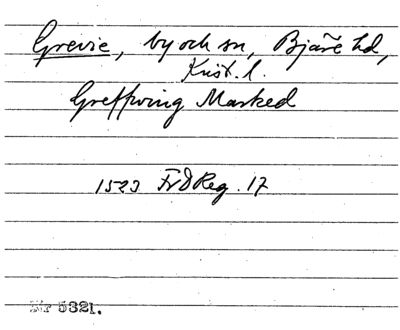 Grevie, by och sn, Bjäre hd,
Krist. l.
Greffwing Marked
1523 FrdReg. 17
Nr 5321.